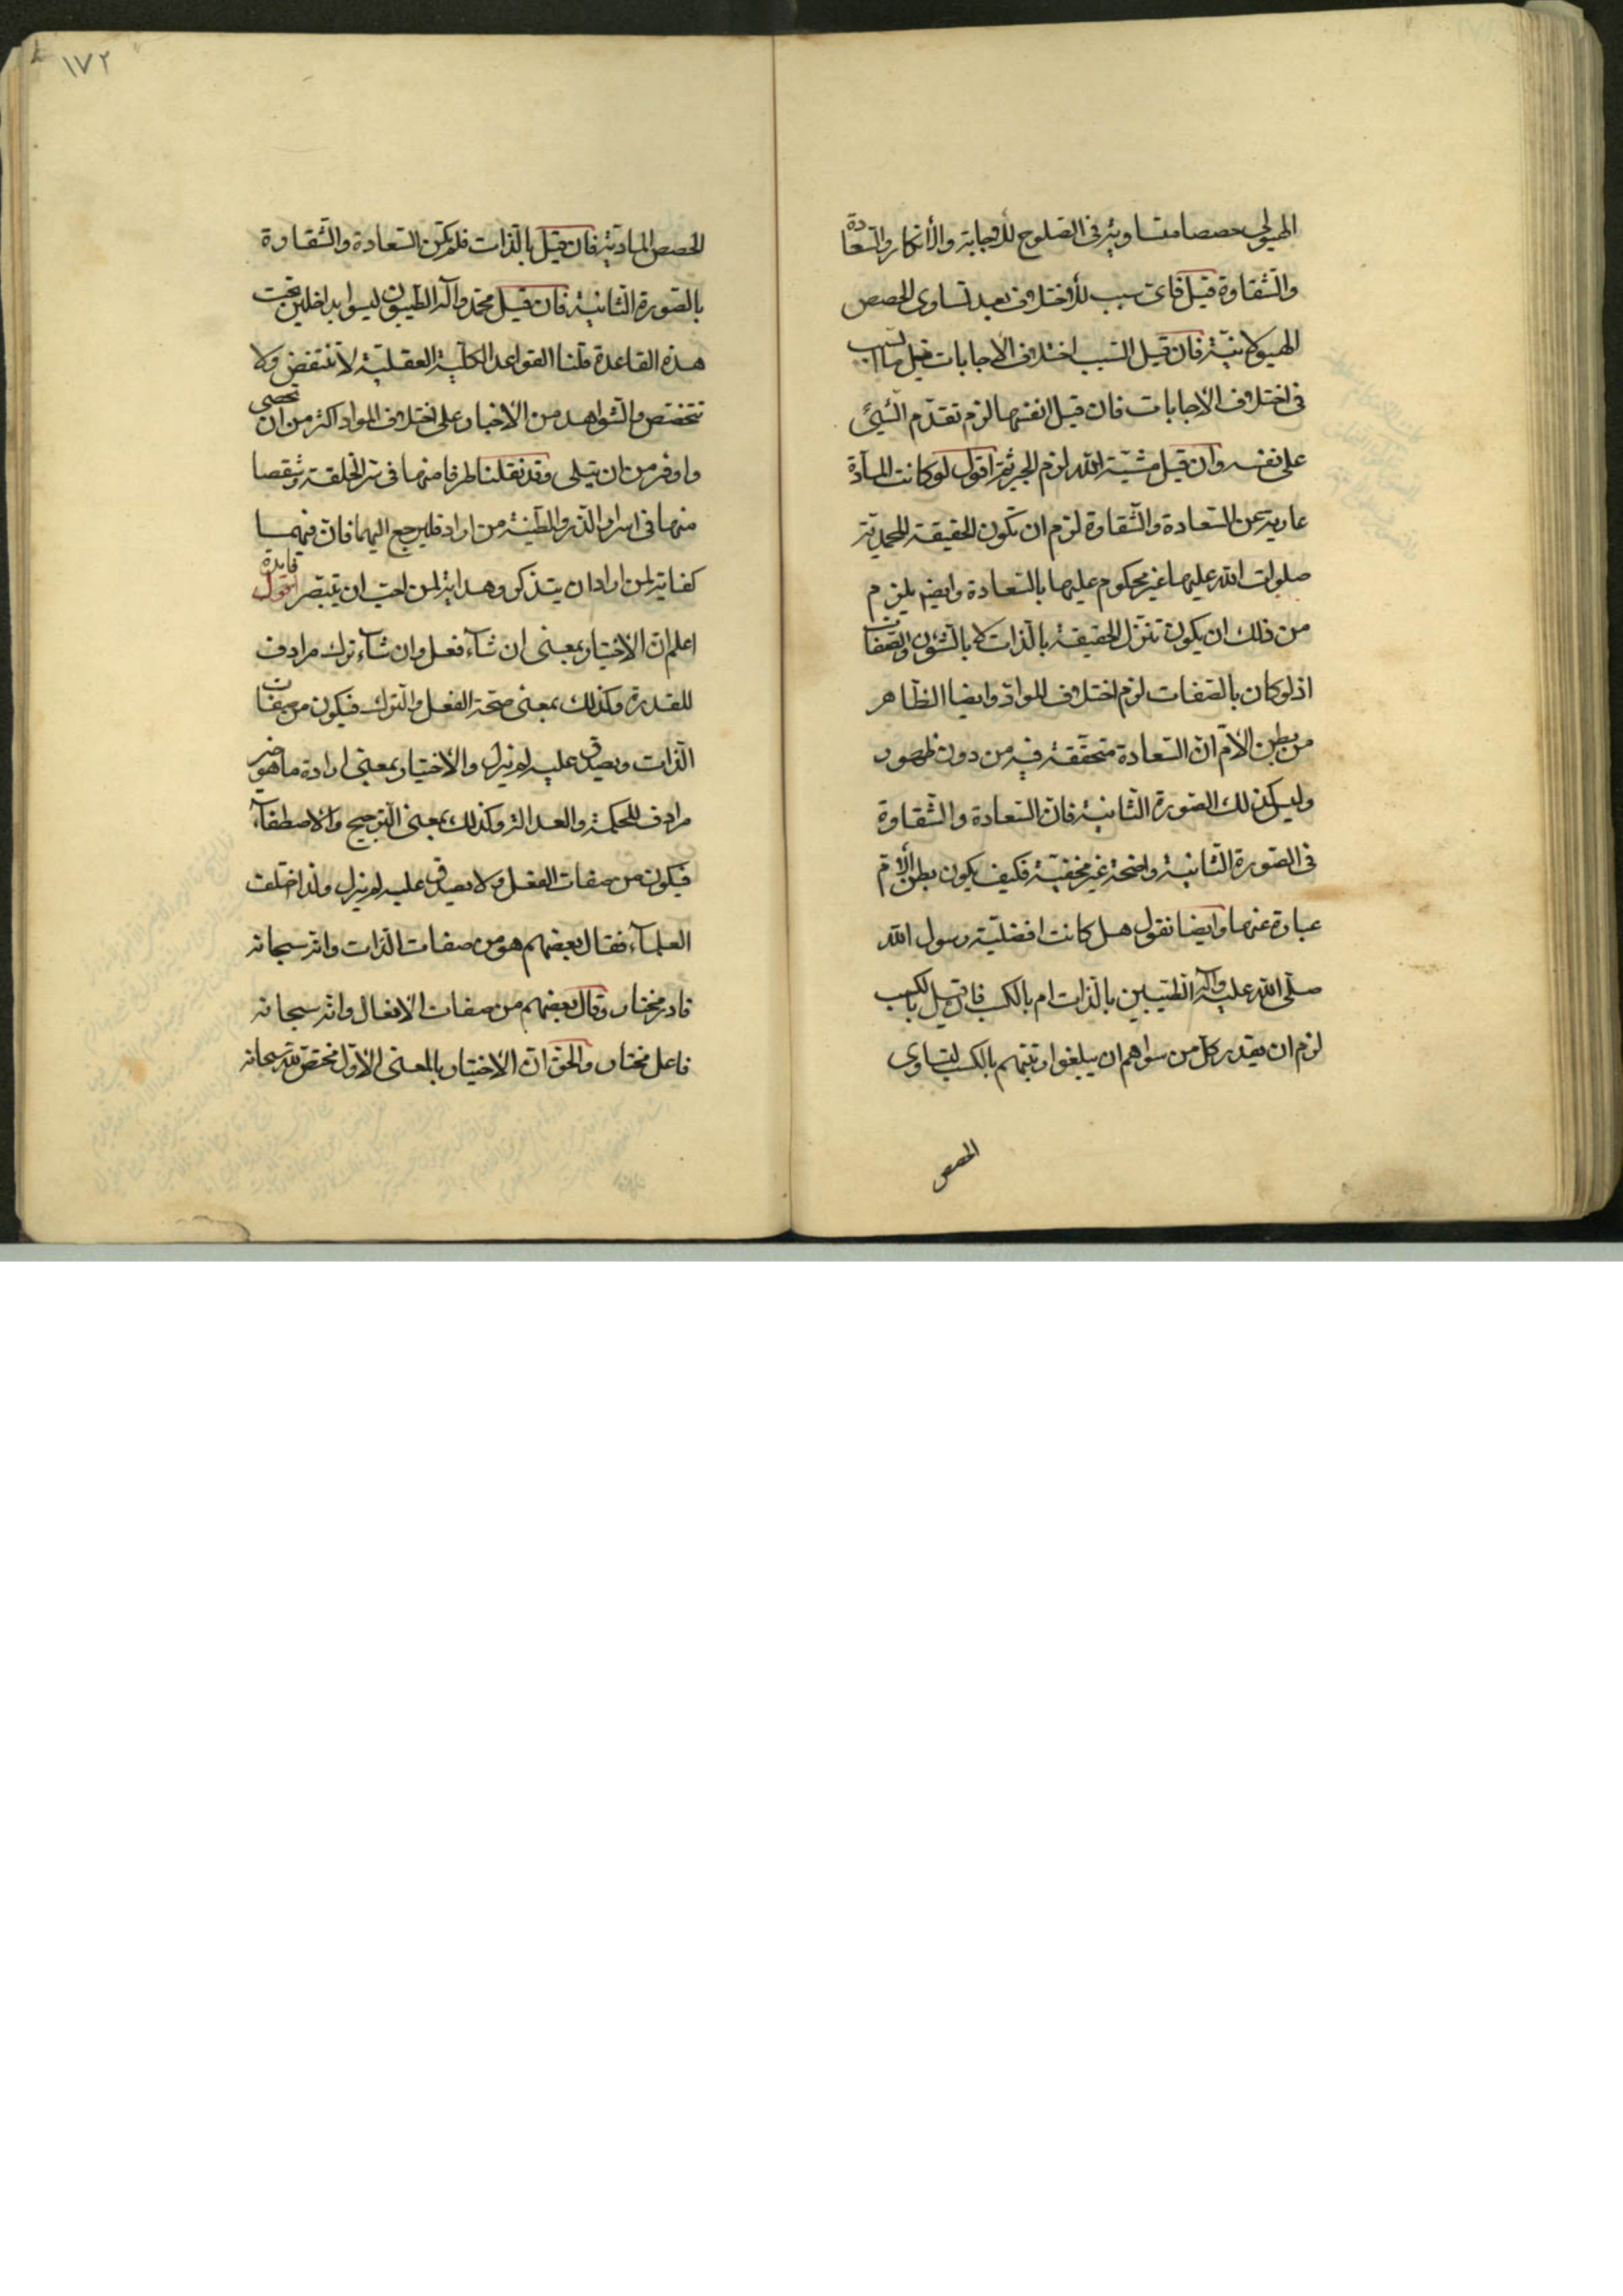 الهيولى حصصا متساوية في الصلوح للاجابة والانكار والسعادة
والشقاوة قيل فاى سبب للاختلاف بعد تساوى الحصص
الهيولانية فان قيل السبب اختلاف الاجابات قيل ما السبب
فى اختلاف الاجابات فان قيل انفسها لزم تقدّم الشيئ
على نفسه وان قيل مشيّة الله لزم الجبر ثم اقول لو كانت المادّة
عارية عن السعادة والشقاوة لزم ان تكون الحقيقة المحمدية
صلوات الله عليها غير محكوم عليها بالسعادة وايضا يلزم
من ذلك ان يكون تنزل الحقيقة بالذات لا بالشؤن والصفات
اذ لو كان بالصفات لزم اختلاف الموادّ وايضا الظاهر
من بطن الامّ انّ السعادة متحققة فيه من دون ظهور
وليس كذلك الصورة الثانية فانّ السعادة والشقاوة
فى الصورة الثانية واضحة غير مخفية فكيف يكون بطن الامّ
عبارة عنها وايضا نقول هل كانت افضلية رسول الله
صلّى الله عليه وآله الطيّبين بالذات ام بالكسب فان قيل بالكسب
لزم ان يقدر كل من سواهم ان يبلغوا رتبتهم بالكسب لتساوى
الحصص
١٧٢
الحصص المادية فان قيل بالذات فلم تكن السعادة والشقاوة
بالصورة الثانية فان قيل محمّد وآله الطيبون ليسوا بداخلين تحت
هذه القاعدة قلنا القواعد الكلّية العقلية لا تنتقض ولا
تتخصّص والشواهد من الاخبار على اختلاف المواد اكثر من ان تحصى
واوفر من ان تتلى وقد نقلنا طرفا منها فى سرّ الخلقة وشقصا
منها فى اسرار الذر والطينة من اراد فليرجع اليهما فانّ فيهما
كفاية لمن اراد ان يتذكر وهداية لمن احب ان يتبصر فايدة اقول
اعلم انّ الاختيار بمعنى ان شاء فعل وان شاء ترك مرادف
للقدرة وكذلك بمعنى صحّة الفعل والترك فيكون من صفات
الذات ويصدق عليه لم يزل والاختيار بمعنى ارادة ما هو خير
مرادف للحكمة والعدالة وكذلك بمعنى الترجيح والاصطفاء
فيكون من صفات الفعل ولا يصدق عليه لم يزل ولذا اختلف
العلماء فقال بعضهم هو من صفات الذات وانه سبحانه
قادر مختار وقال بعضهم من صفات الافعال وانه سبحانه
فاعل مختار والحق انّ الاختيار بالمعنى الاوّل مختصّ لله سبحانه